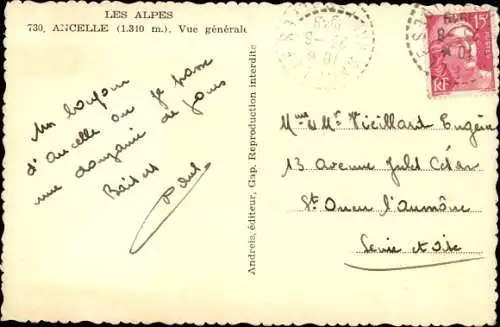 LES ALPES
730. ANCELLE (1.310 m.). Vue générale
Un bonjour
d'Ancelle ou je passe
une douzaine de jours
Baisers
Paul
Andreis, éditeur, Gap. Reproduction interdite
1949
15F
RF
Mme & Mr Vieillard Eugène
13 Avenue Jules César
St Ouen l'aumône
Seine et Oise